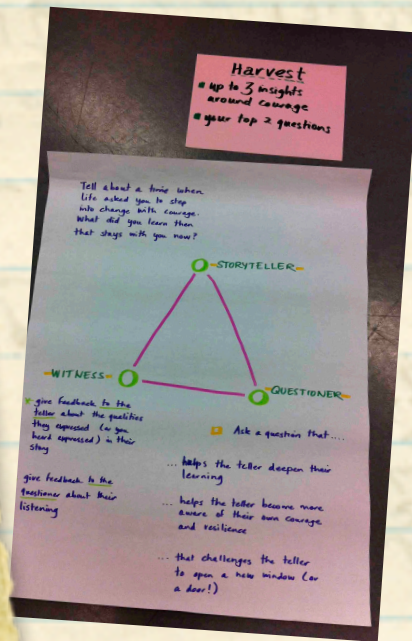 Harvest
up to 3 insights
around courage
your top 2 questions
Tell about a time when
life asked you to step
into change with courage.
What did you learn then
that stays with you now?
STORYTELLER
WITNESS
QUESTIONER
give feedback to the
teller about the qualities
they expressed (or you
heard expressed) in their
story
give feedback to the
questioner about their
listening
Ask a question that....
... helps the teller deepen their
learning
... helps the teller become more
aware of their own courage
and resilience
... that challenges the teller
to open a new window (or
a door!)